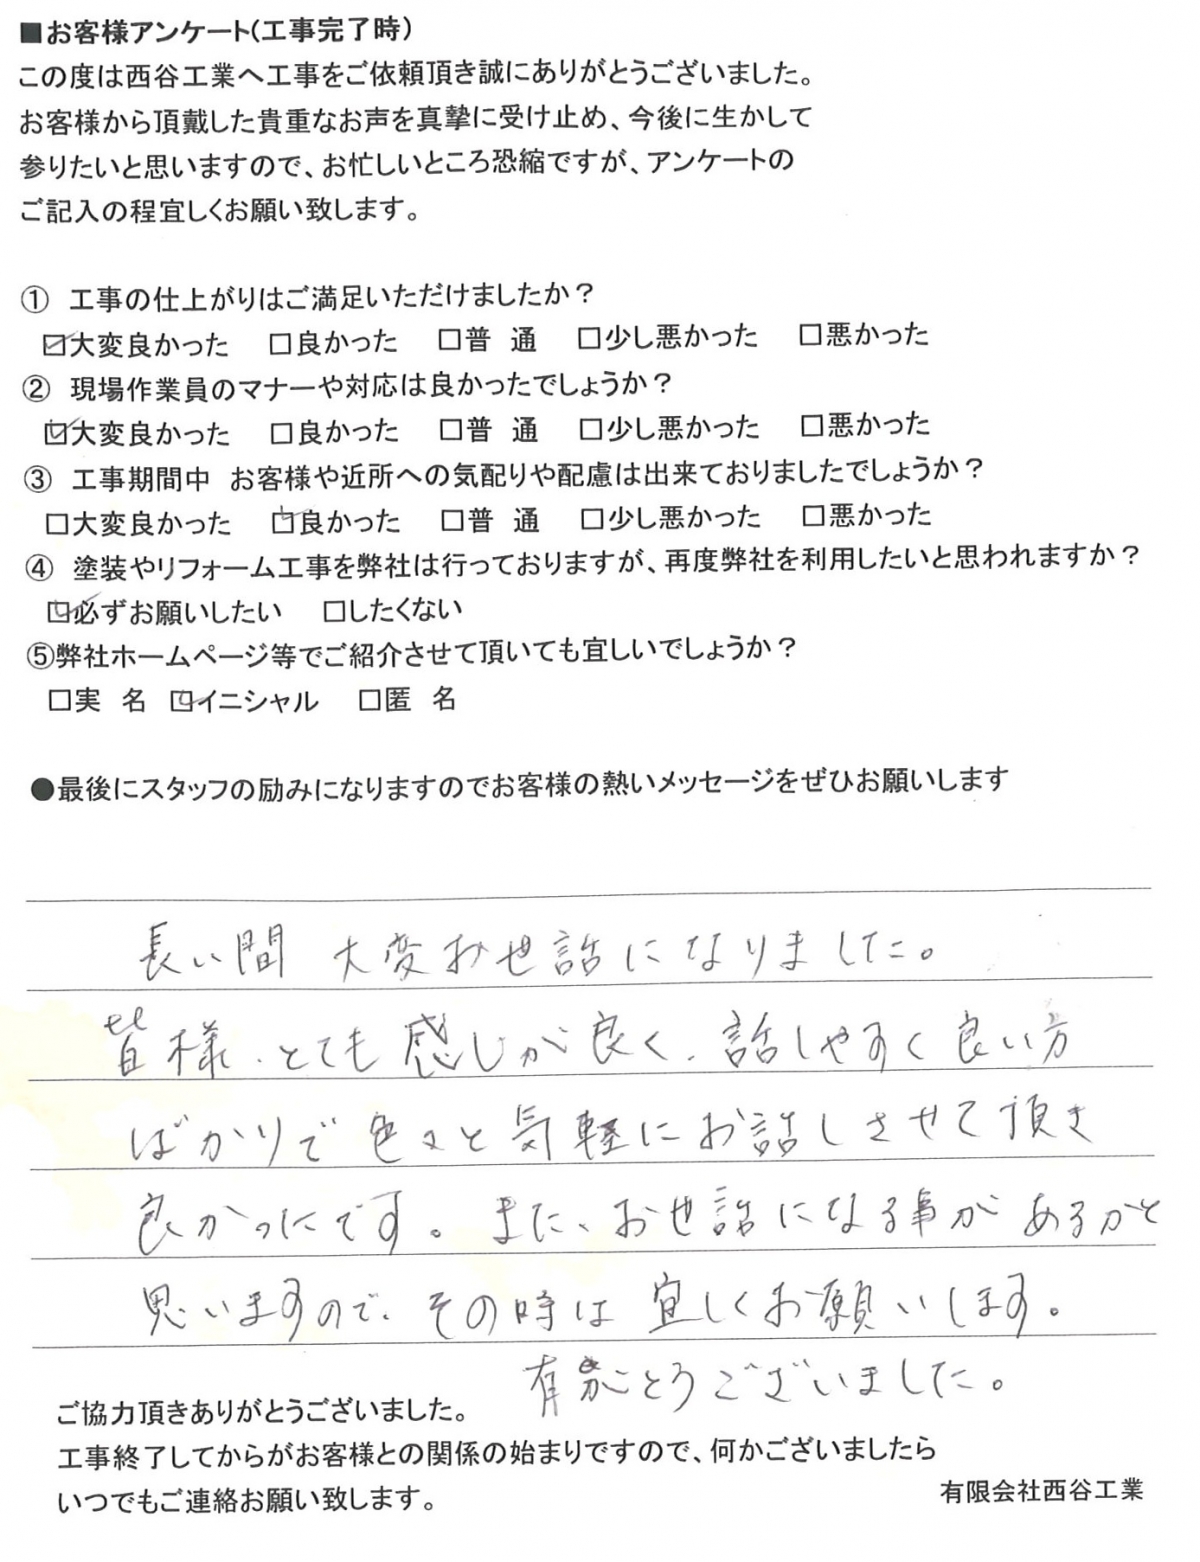 ■お客様アンケート(工事完了時)
この度は西谷工業へ工事をご依頼頂き誠にありがとうございました。
お客様から頂戴した貴重なお声を真摯に受け止め、今後に生かして
参りたいと思いますので、お忙しいところ恐縮ですが、アンケートの
ご記入の程宜しくお願い致します。
① 工事の仕上がりはご満足いただけましたか？
☑大変良かった □良かった □普 通 □少し悪かった □悪かった
② 現場作業員のマナーや対応は良かったでしょうか？
☑大変良かった □良かった □普 通 □少し悪かった □悪かった
③ 工事期間中 お客様や近所への気配りや配慮は出来ておりましたでしょうか？
□大変良かった ☑良かった □普 通 □少し悪かった □悪かった
④ 塗装やリフォーム工事を弊社は行っておりますが、再度弊社を利用したいと思われますか？
☑必ずお願いしたい □したくない
⑤弊社ホームページ等でご紹介させて頂いても宜しいでしょうか？
□実 名 ☑イニシャル □匿 名
●最後にスタッフの励みになりますのでお客様の熱いメッセージをぜひお願いします
長い間 大変お世話になりました。
皆様、とても感じが良く、話しやすく良い方
ばかりで色々と気軽にお話しさせて頂き
良かったです。また、お世話になる事があるかと
思いますので、その時は宜しくお願いします。
有難とうございました。
ご協力頂きありがとうございました。
工事終了してからがお客様との関係の始まりですので、何かございましたら
いつでもご連絡お願い致します。
有限会社西谷工業